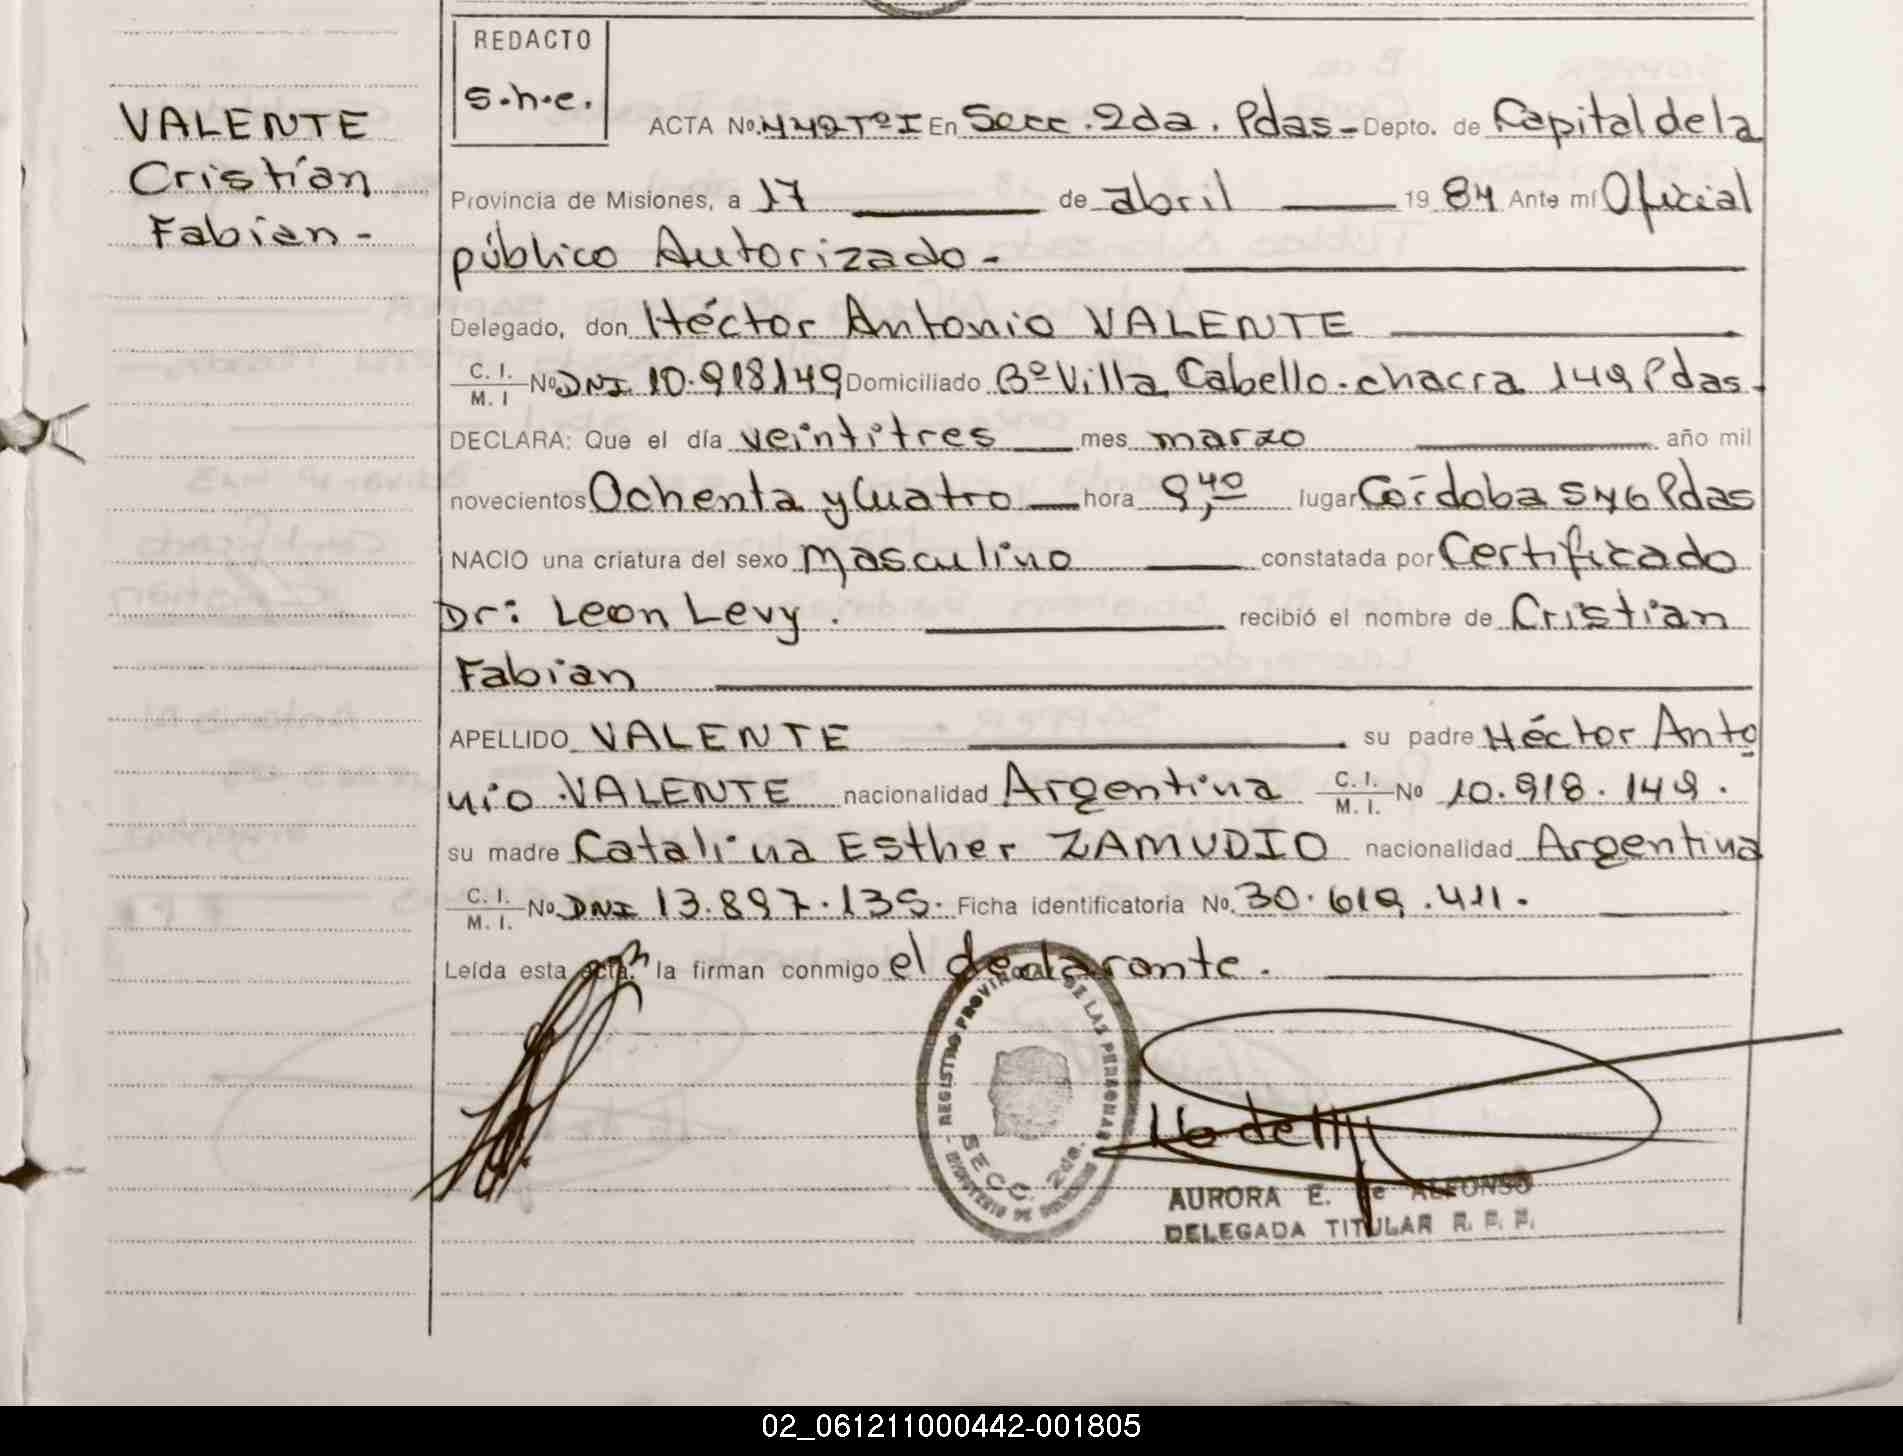 REDACTO
s.h.e.
VALENTE
Cristían
Fabian -
ACTA No. 442 Tº I En Secc. 2da. Pdas - Depto. de Capital de la
Provincia de Misiones, a 17 de abril 19 84 Ante mí Oficial
público Autorizado -
Delegado, don Héctor Antonio VALENTE
C. I. / M. I No. DNI 10.918149 Domiciliado Bº Villa Cabello - chacra 149 Pdas.
DECLARA: Que el día veintitres mes marzo año mil
novecientos Ochenta y Cuatro hora 9,40 lugar Córdoba 546 Pdas
NACIO una criatura del sexo masculino constatada por Certificado
Dr: Leon Levy. recibió el nombre de Cristian
Fabian
APELLIDO VALENTE su padre Héctor Anto
nio VALENTE nacionalidad Argentina C. I. / M. I. No 10.918.149.
su madre Catalina Esther ZAMUDIO nacionalidad Argentina
C. I. / M. I. No. DNI 13.897.135. Ficha identificatoria No. 30.619.411.
Leída esta acta, la firman conmigo el declarante.
REGISTRO PROVINCIAL DE LAS PERSONAS
SECC. 2da.
AURORA E. de ALFONSO
DELEGADA TITULAR R. P. P.
02_061211000442-001805